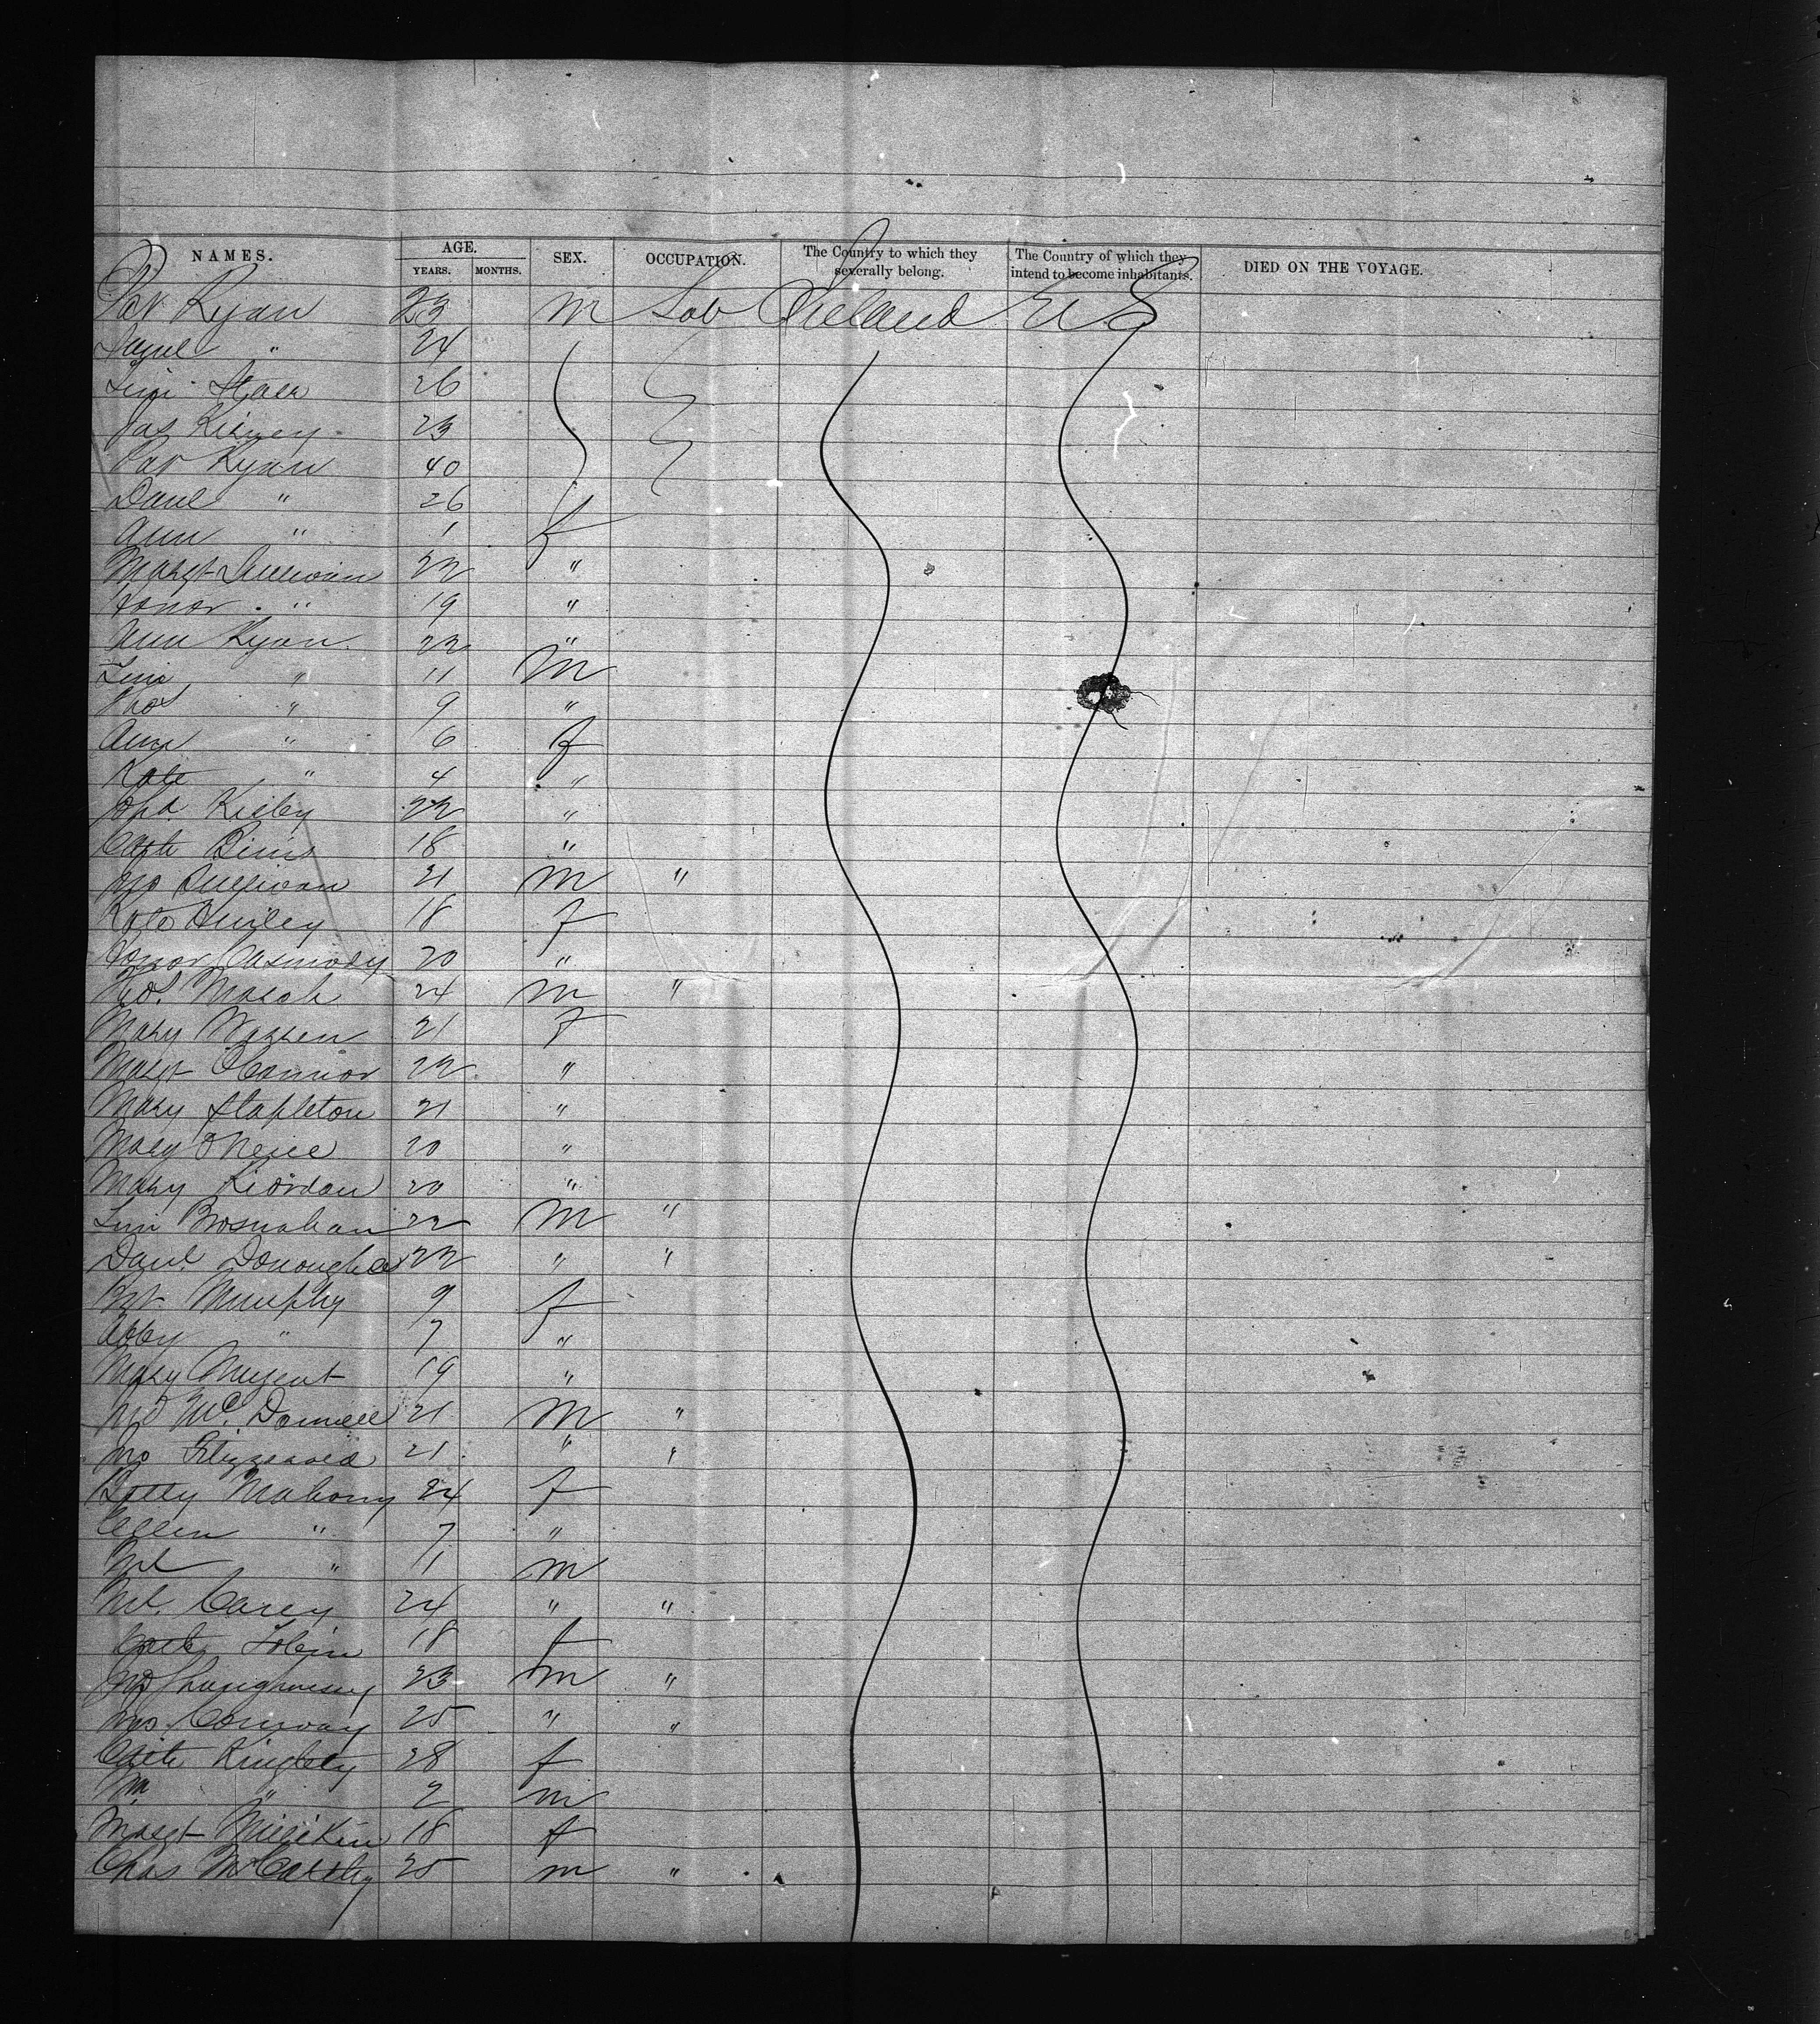 NAMES. AGE. SEX. OCCUPATION. The Country to which they severally belong. The Country of which they intend to become inhabitants. DIED ON THE VOYAGE.
YEARS. MONTHS.
Pat Ryan 23 m Lab Ireland U S
Danl " 24
Tim 26
Jas 23
Pat Ryan 40
Danl " 26
Ann " 1 f
Margt Sullivan 22 "
Honor " 19 "
Ann Ryan 22 "
Tim " 11 m
Thos " 9 "
Ann " 6 f
Kate " 4 "
Kirby 22 "
Cath 18 "
Jno Sullivan 21 m "
Kate Hurley 18 f
Honor Casmody 20 "
24 m "
Mary Warren 21 f
Margt OConnor 22 "
Mary Stapleton 21 "
Mary O'Neill 20 "
Mary Riordan 20 "
Tim Brosnahan 22 m "
Danl Donoughue 22 " "
Bgt Murphy 9 f
Abby " 7 "
Mary Nugent 19 "
Jno McDonnell 21 m "
Jno Fitzgerald 21 " "
Betty Mahony 24 f
Ellen " 7 "
Ml " 11 m
Ml. Carey 24 " "
Cath Tobin 18 f
Jno Shaughnessy 23 m "
Jno Conway 25 " "
Cath 28 f
Wm " 2 m
Margt Milliken 18 f
Chas McCarthy 25 m "